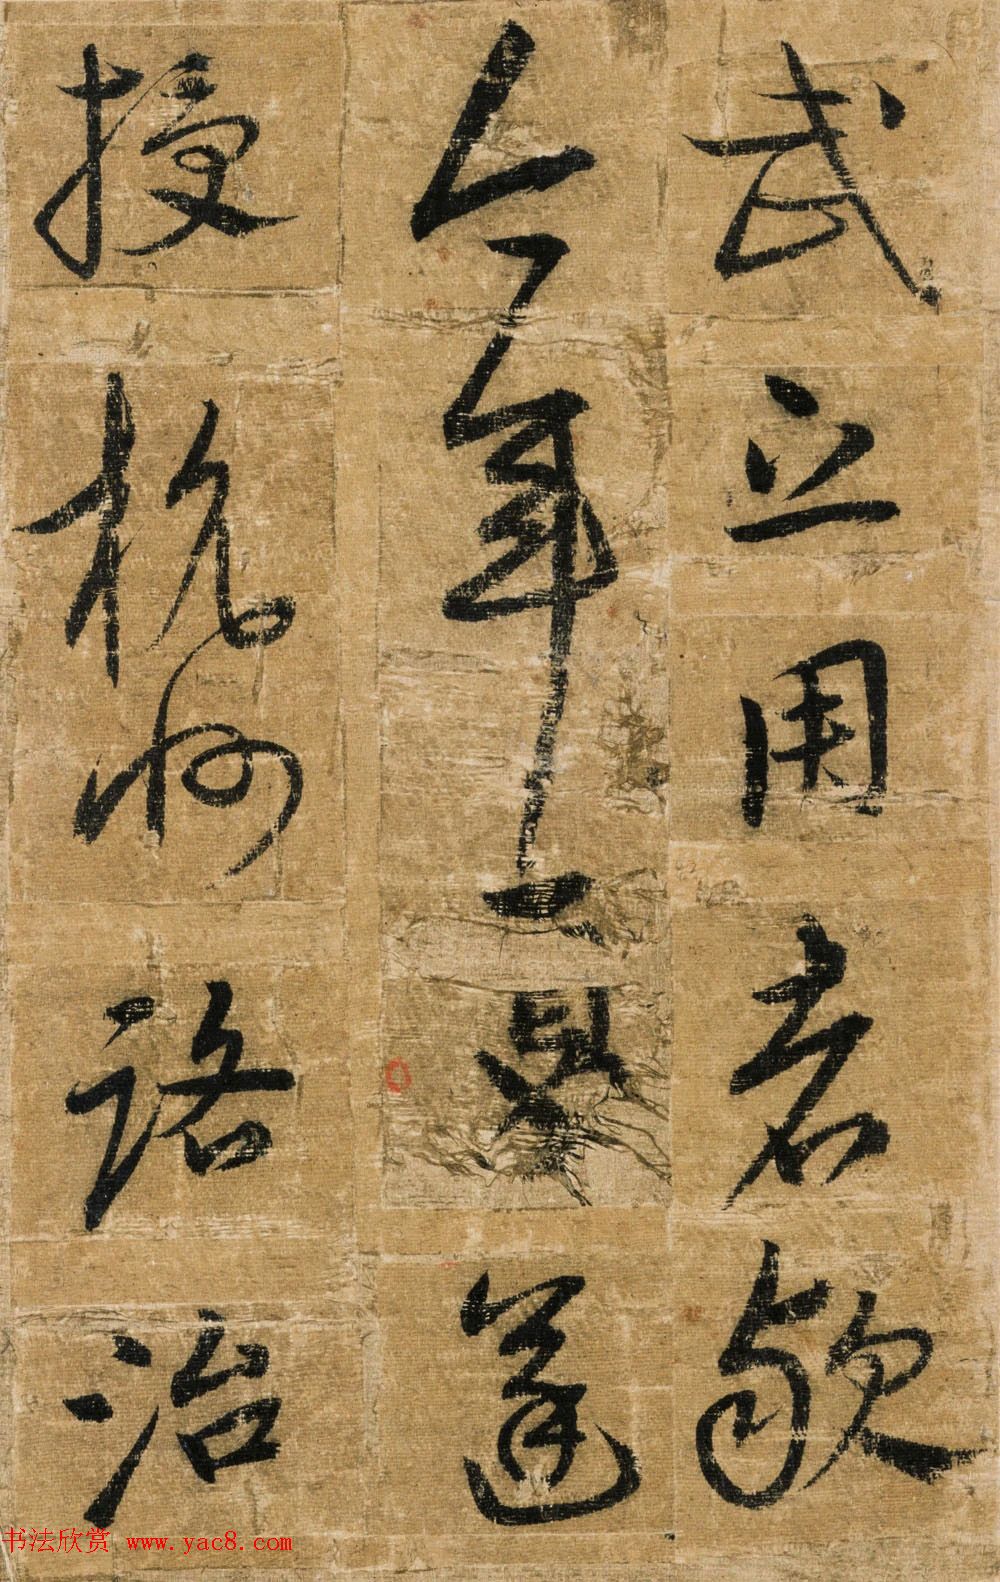 武立用者歟
今年夏遂
授杭州路治
书法欣赏 www.yac8.com